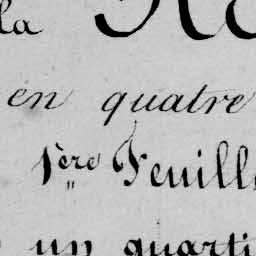 la
en quatre
1ère Feuill
un quarti